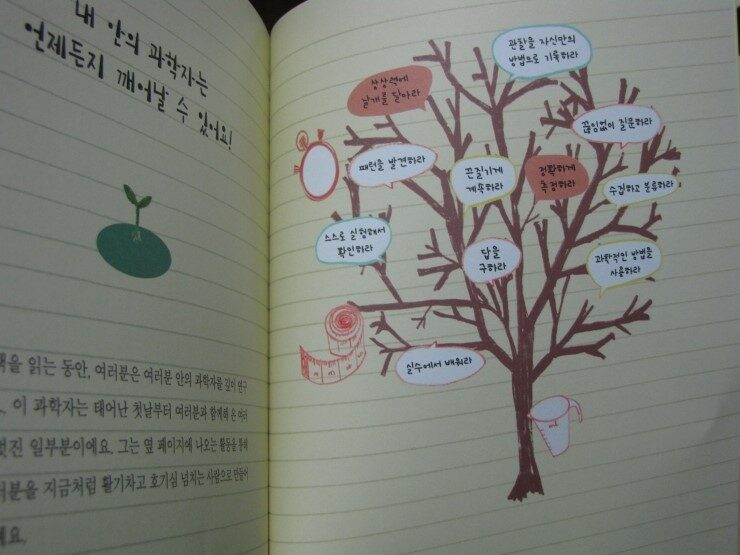 내 안의 과학자는
언제든지 깨어날 수 있어요!
책을 읽는 동안, 여러분은 여러분 안의 과학자를 깊이 연구
이 과학자는 태어난 첫날부터 여러분과 함께해 온 여러
멋진 일부분이에요. 그는 옆 페이지에 나오는 활동을 통해
러분을 지금처럼 활기차고 호기심 넘치는 사람으로 만들어
관찰을 자신만의
방법으로 기록하라
상상력에
날개를 달아라
끊임없이 질문하라
패턴을 발견하라
끈질기게
계속하라
정확하게
측정하라
수집하고 분류하라
스스로 실험해서
확인하라
답을
구하라
과학적인 방법을
사용하라
실수에서 배워라